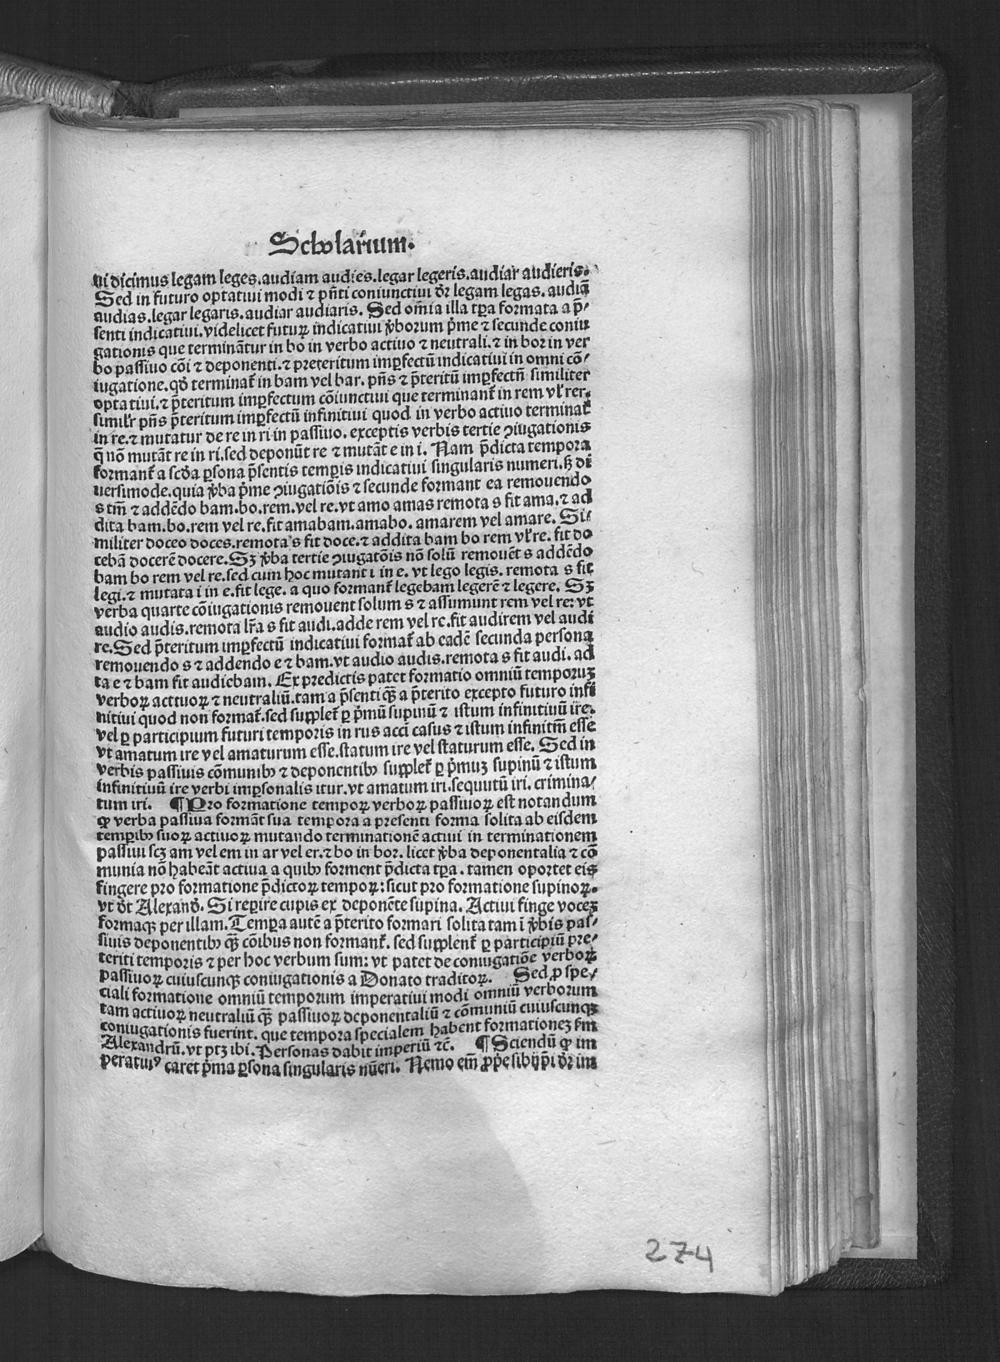 Scholarium.
vi dicimus legam leges.audiam audies.legar legeris.audiar audieris.
Sed in futuro optatiui modi ⁊ pñti coniunctiui dr̃ legam legas. audiã
audias.legar legaris.audiar audiaris. Sed om̃ia illa tꝑa formata a p̃⸗
senti indicatiui.videlicet futuꝝ indicatiui ṽborum p̃me ⁊ secunde coniu
gationis que terminãtur in bo in verbo actiuo ⁊ neutrali.⁊ in bor in ver
bo passiuo cõi ⁊ deponenti.⁊ preteritum imꝑfectũ indicatiui in omni cõ⸗
iugatione.qď terminat̃ in bam vel bar. pñs ⁊ p̃teritũ imꝑfectũ similiter
optatiui.⁊ p̃teritum imꝑfectum cõiunctiui que terminant̃ in rem vl̃ rer.
simil̃r pñs p̃teritum imꝑfectũ infinitiui quod in verbo actiuo terminat̃
in re.⁊ mutatur de re in ri in passiuo. exceptis verbis tertie ꝯiugationis
q̃ nõ mutãt re in ri.sed deponũt re ⁊ mutãt e in i. Nam p̃dicta tempora
formant̃ a scďa ꝑsona p̃sentis temꝑis indicatiui singularis numeri.sꝫ di
uersimode.quia ṽba p̃me ꝯiugatiõis ⁊ secunde formant ea remouendo
s tm̃ ⁊ addẽdo bam.bo.rem.vel re.vt amo amas remota s fit ama.⁊ ad
dita bam.bo.rem vel re.fit amabam.amabo. amarem vel amare. Si⸗
militer doceo doces.remota s fit doce.⁊ addita bam bo rem vl̃ re. fit do
cebã docerẽ docere. Sꝫ ṽba tertie ꝯiugatõis nõ solũ remouẽt s addẽdo
bam bo rem vel re.sed cum hoc mutant i in e. vt lego legis. remota s fit
legi.⁊ mutata i in e.fit lege. a quo formant̃ legebam legerẽ ⁊ legere. Sꝫ
verba quarte cõiugationis remouent solum s ⁊ assumunt rem vel re: vt
audio audis.remota lr̃a s fit audi.adde rem vel re.fit audirem vel audi
re. Sed p̃teritum imꝑfectũ indicatiui format̃ ab eadẽ secunda persona
remouendo s ⁊ addendo e ⁊ bam.vt audio audis.remota s fit audi. ad
ta e ⁊ bam fit audiebam. Ex predictis patet formatio omniũ temporuꝫ
verboꝝ actiuoꝝ ⁊ neutraliũ.tam a p̃senti qꝫ̃ a p̃terito excepto futuro infi
nitiui quod non format̃.sed supplet̃ ꝑ p̃mũ supinũ ⁊ istum infinitiuũ ire.
vel ꝑ participium futuri temporis in rus acc̃i casus ⁊ istum infinitm̃ esse
vt amatum ire vel amaturum esse.statum ire vel staturum esse. Sed in
verbis passiuis cõmunibꝰ ⁊ deponentibꝰ supplet̃ ꝑ p̃muꝫ supinũ ⁊ istum
infinitiuũ ire verbi imꝑsonalis itur.vt amatum iri.sequutũ iri. crimina⸗
tum iri. ¶ Pro formatione tempoꝝ verboꝝ passiuoꝝ est notandum
ꝙ verba passiua formãt sua tempora a presenti forma solita ab eisdem
temꝑibꝰ suoꝝ actiuoꝝ mutando terminationẽ actiui in terminationem
passiui scꝫ am vel em in ar vel er.⁊ bo in bor. licet ṽba deponentalia ⁊ cõ
munia nõ habeãt actiua a quibꝰ forment p̃dicta tꝑa. tamen oportet eis
fingere pro formatione p̃dictoꝝ tempoꝝ: sicut pro formatione supinoꝝ.
vt dr̃t Alexanď. Si reꝑire cupis ex deponẽte supina. Actiui finge voceꝫ
formaqꝫ per illam. Temꝑa autẽ a p̃terito formari solita tam ĩ ṽbis pas⸗
siuis deponentibꝰ qꝫ̃ cõibus non formant̃. sed supplent̃ ꝑ participiũ pre⸗
teriti temporis ⁊ per hoc verbum sum: vt patet de coniugatiõe verboꝝ
passiuoꝝ cuiuscunqꝫ coniugationis a Donato traditoꝝ. Sed ꝓ spe⸗
ciali formatione omniũ temporum imperatiui modi omniũ verborum
tam actiuoꝝ neutraliũ qꝫ̃ passiuoꝝ deponentaliũ ⁊ cõmuniũ cuiuscunqꝫ
coniugationis fuerint. que tempora specialem habent formationeꝫ fm̃
Alexandrũ.vt ptꝫ ibi. Personas dabit imperiũ ⁊c̃. ¶ Sciendũ ꝙ im
peratiuꝰ caret p̃ma ꝑsona singularis nũeri. Nemo em̃ ꝓp̃e sibijp̃i dr̃ im
274